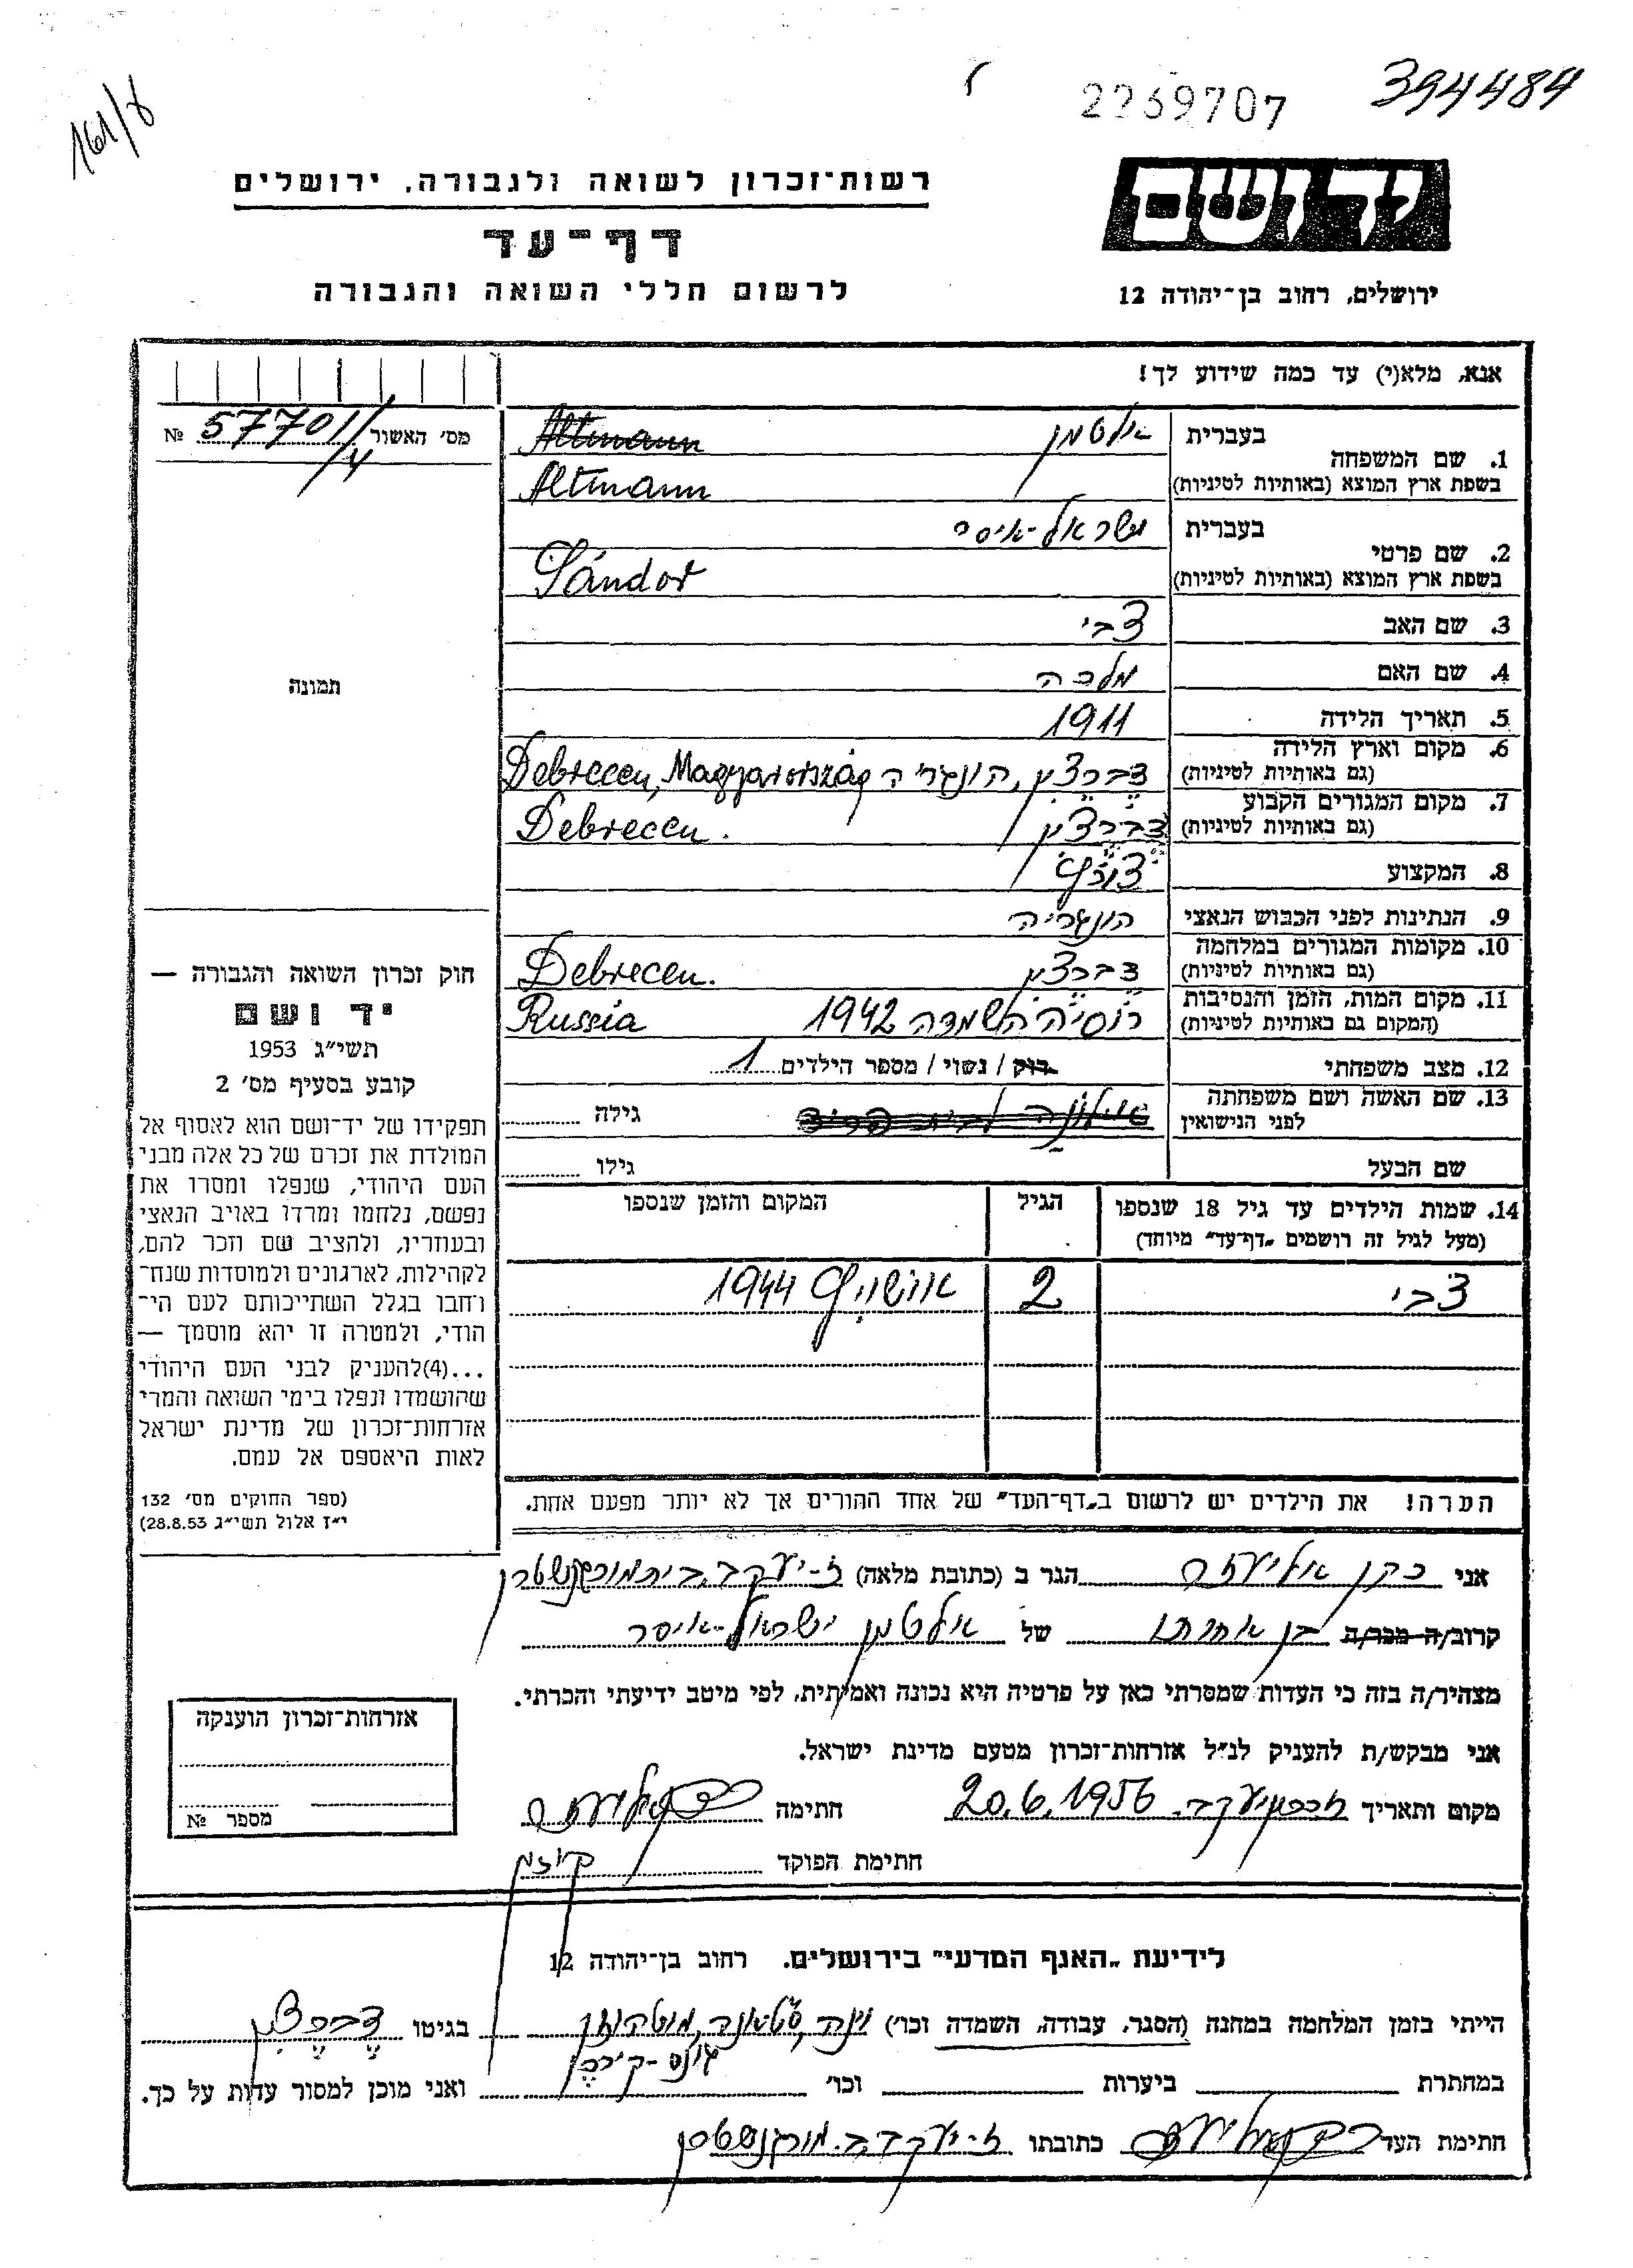 161/8
2269707
394484
ידושם
ירושלים, רחוב בן־יהודה 12
רשות־זכרון לשואה ולגבורה, ירושלים
דף־עד
לרשום חללי השואה והגבורה
אנא, מלא(י) עד כמה שידוע לך!
מס׳ האשור № 57701/4
1. שם המשפחה
בעברית אלטמן
בשפת ארץ המוצא (באותיות לטיניות) Altmann
Altmann
2. שם פרטי
בעברית ישראל-איסר
בשפת ארץ המוצא (באותיות לטיניות) Sándor
3. שם האב צבי
4. שם האם מלכה
5. תאריך הלידה 1911
6. מקום וארץ הלידה (גם באותיות לטיניות) דברצן, הונגריה Debrecen, Magyarország
7. מקום המגורים הקבוע (גם באותיות לטיניות) דברצן Debrecen.
8. המקצוע צורף
9. הנתינות לפני הכבוש הנאצי הונגריה
10. מקומות המגורים במלחמה (גם באותיות לטיניות) דברצן Debrecen.
11. מקום המות, הזמן והנסיבות (המקום גם באותיות לטיניות) רוסיה השמדה 1942 Russia
12. מצב משפחתי רוק / נשוי / מספר הילדים 1
13. שם האשה ושם משפחתה לפני הנישואין גילה
שם הבעל גילו
14. שמות הילדים עד גיל 18 שנספו
(מעל לגיל זה רושמים „דף־עד״ מיוחד)
הגיל
המקום והזמן שנספו
צבי 2 אושויץ 1944
הערה! את הילדים יש לרשום ב„דף־העד״ של אחד ההורים אך לא יותר מפעם אחת.
תמונה
חוק זכרון השואה והגבורה —
יד ושם
תשי״ג 1953
קובע בסעיף מס׳ 2
תפקידו של יד־ושם הוא לאסוף אל
המולדת את זכרם של כל אלה מבני
העם היהודי, שנפלו ומסרו את
נפשם, נלחמו ומרדו באויב הנאצי
ובעוזריו, ולהציב שם וזכר להם,
לקהילות, לארגונים ולמוסדות שנח־
רבו בגלל השתייכותם לעם הי־
הודי, ולמטרה זו יהא מוסמך —
...(4)להעניק לבני העם היהודי
שהושמדו ונפלו בימי השואה והמרי
אזרחות־זכרון של מדינת ישראל
לאות היאספם אל עמם.
(ספר החוקים מס׳ 132
י״ז אלול תשי״ג 28.8.53)
אני כהן אליעזר הגר ב (כתובת מלאה) ז-יעקב, בית מורגנשטרן
קרוב/ה מכר/ת בן אחותו של אלטמן ישראל-איסר
מצהיר/ה בזה כי העדות שמסרתי כאן על פרטיה היא נכונה ואמיתית, לפי מיטב ידיעתי והכרתי.
אני מבקש/ת להעניק לנ״ל אזרחות־זכרון מטעם מדינת ישראל.
מקום ותאריך זכרון יעקב. 20.6.1956 חתימה כהן אליעזר
חתימת הפוקד
אזרחות־זכרון הוענקה
מספר №
לידיעת „האגף המדעי״ בירושלים. רחוב בן־יהודה 12
הייתי בזמן המלחמה במחנה (הסגר, עבודה, השמדה וכו׳) וינה, מוטהוזן בגיטו דברצן
גונס-קירכן
במחתרת ביערות וכו׳ ואני מוכן למסור עדות על כך.
חתימת העד כהן אליעזר כתובתו ז-יעקב, ב. מורגנשטרן